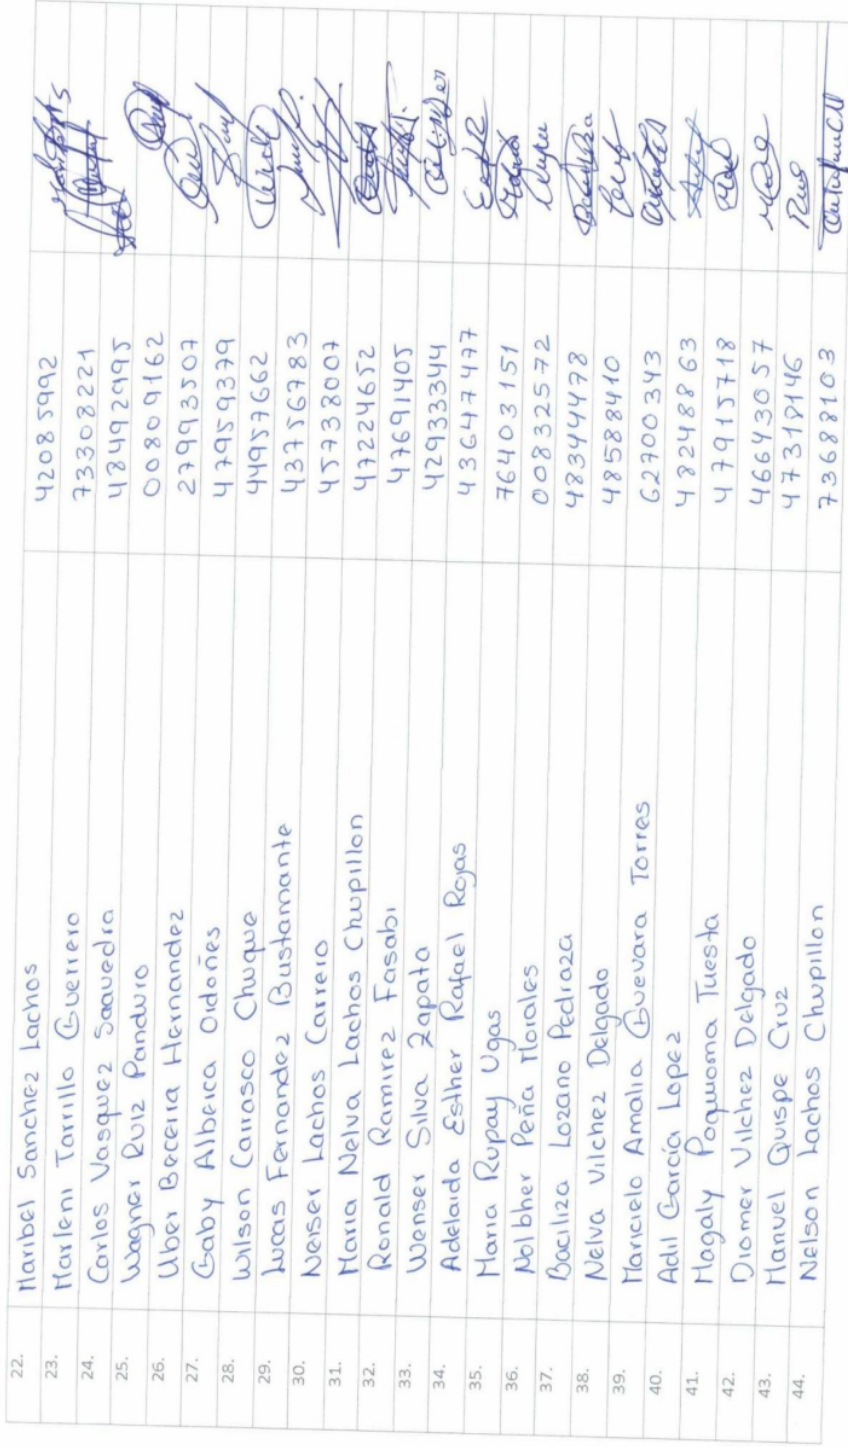 22. Maribel Sanchez Lachos 42085992
23. Marleni Tarrillo Guerrero 73308221
24. Carlos Vasquez Saavedra 48492995
25. Wagner Ruiz Panduro 00809162
26. Uber Becerra Hernandez 27993507
27. Gaby Alberca Ordoñes 47959379
28. Wilson Carrasco Chuque 44957662
29. Lucas Fernandez Bustamante 43756783
30. Neiser Lachos Carrero 45738007
31. Maria Nelva Lachos Chupillon 47224652
32. Ronald Ramirez Fasabi 47691405
33. Wenser Silva Zapata 42933344
34. Adelaida Esther Rafael Rojas 43647477
35. Maria Rupay Ugas 76403151
36. Nolbher Peña Morales 00832572
37. Baciliza Lozano Pedraza 48344478
38. Nelva Vilchez Delgado 48588410
39. Maricielo Amalia Guevara Torres 62700343
40. Adil García Lopez 48248863
41. Magaly Poquioma Tuesta 47915718
42. Diomer Vilchez Delgado 46643057
43. Manuel Quispe Cruz 47318146
44. Nelson Lachos Chupillon 73688103